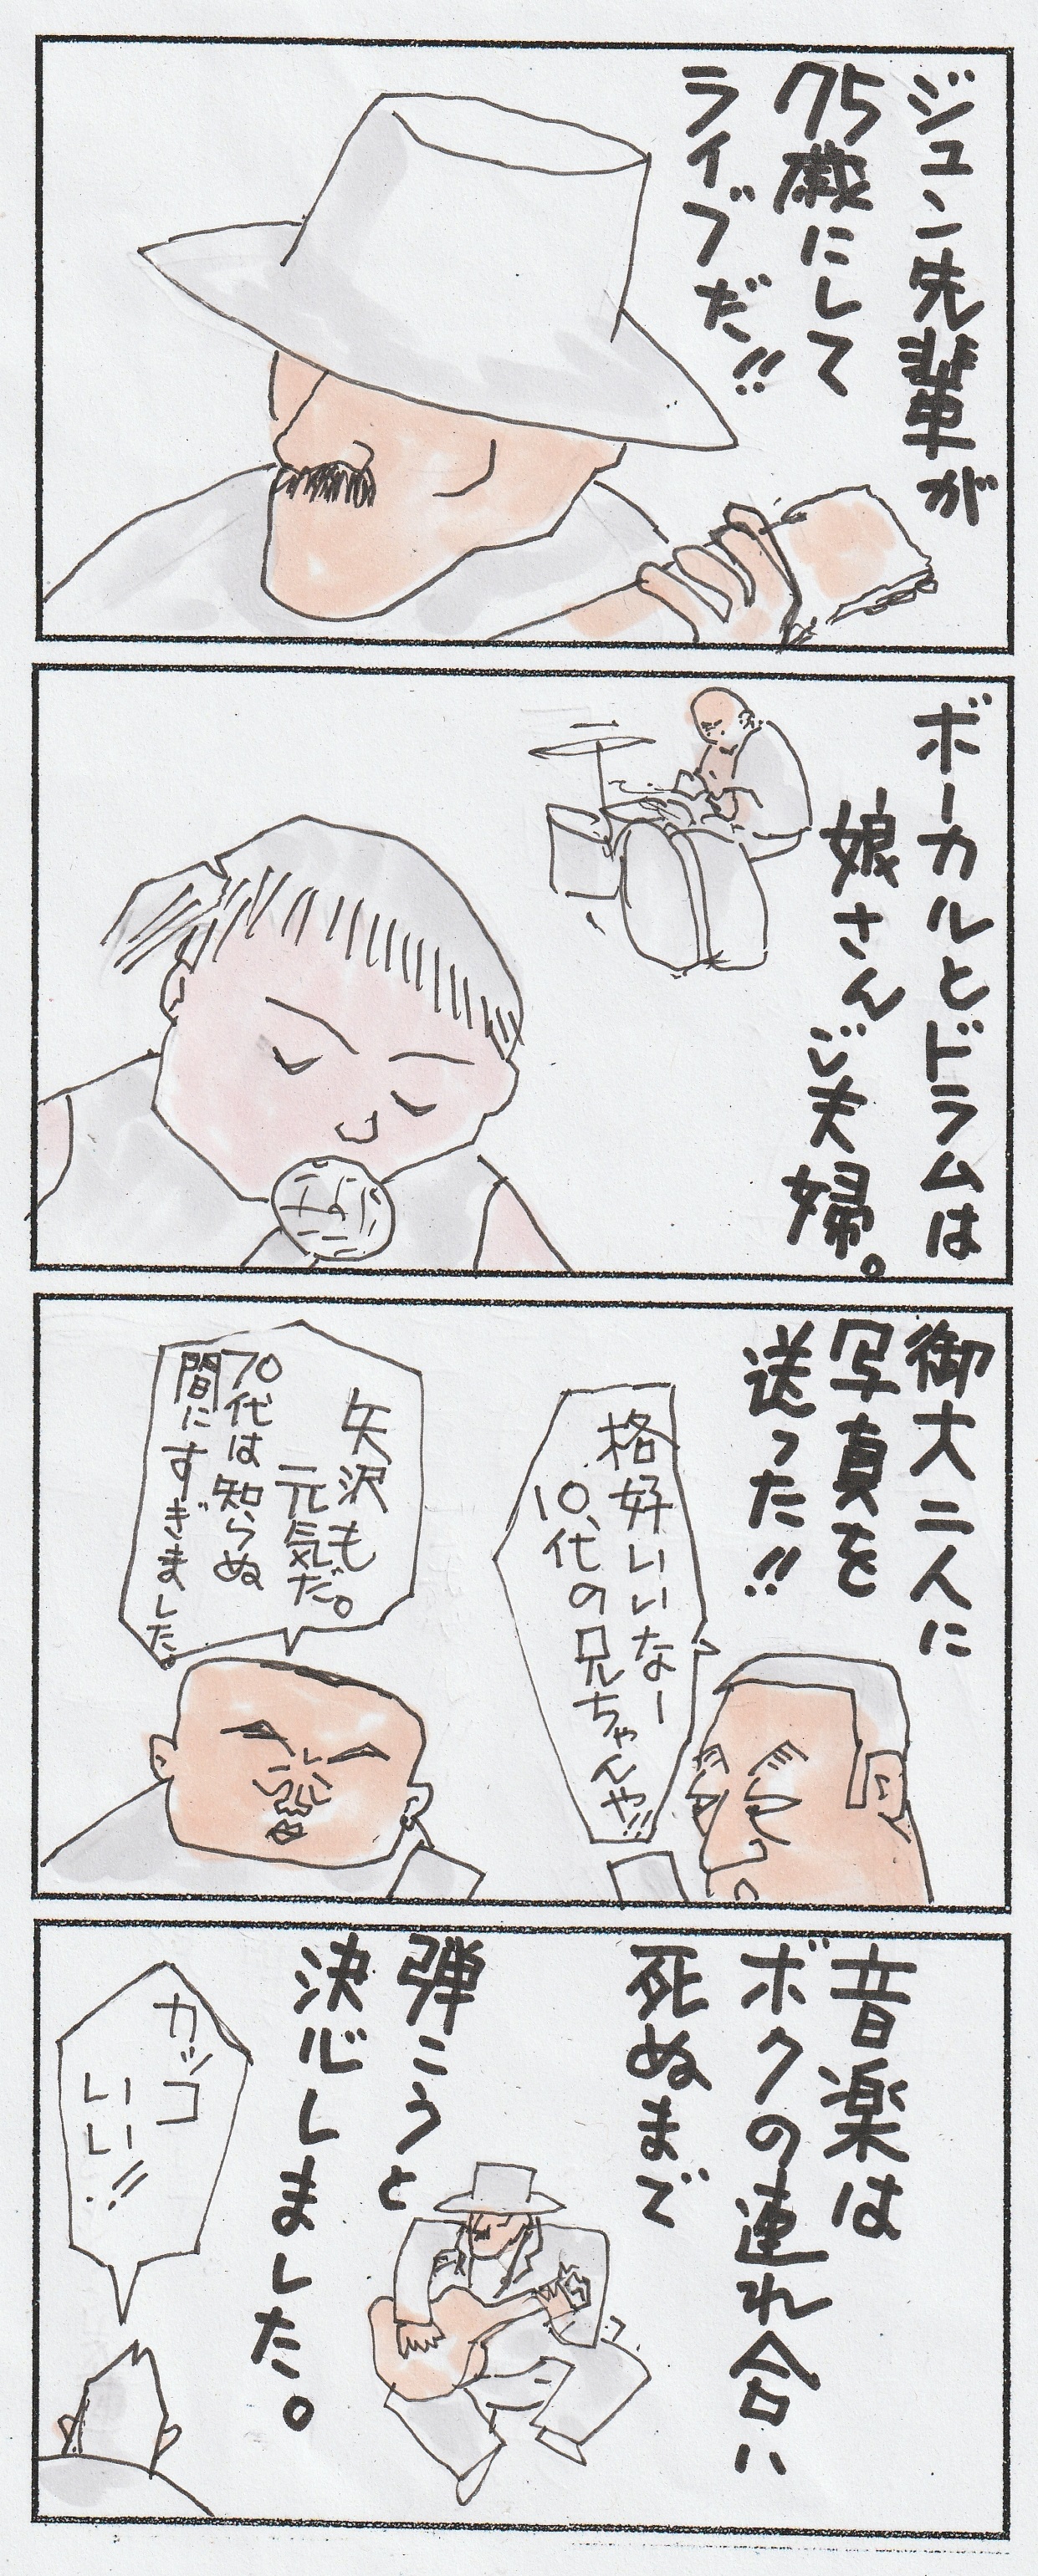 ジュン先輩が
75歳にして
ライブだ!!
ボーカルとドラムは
娘さんご夫婦。
御大二人に
写真を
送った!!
格好いいなー
10代の兄ちゃんや!!
矢沢も
元気だ。
70代は知らぬ
間にすぎました。
音楽は
ボクの連れ合い
死ぬまで
弾こうと
決心しました。
カッコ
いい!!